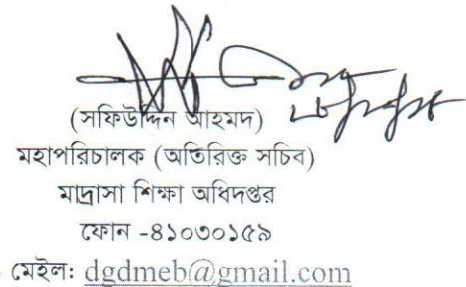 (সফিউদ্দিন আহমদ)
মহাপরিচালক (অতিরিক্ত সচিব)
মাদ্রাসা শিক্ষা অধিদপ্তর
ফোন -৪১০৩০১৫৯
মেইল: dgdmeb@gmail.com